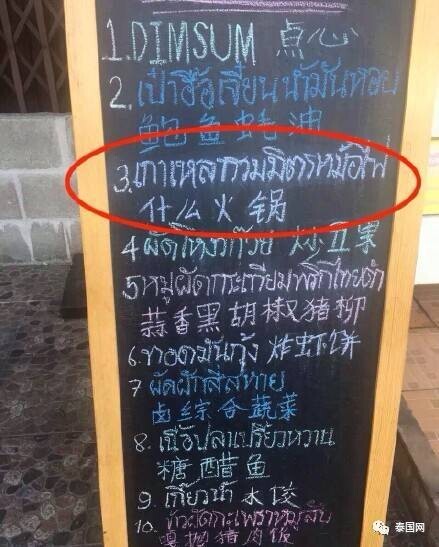 1. DIMSUM 点心
2. เป๋าฮื้อเจี๋ยนน้ำมันหอย
鲍鱼蚝油
3. เกาเหลารวมมิตรหม้อไฟ
什么火锅
4 ผัดโหงวก๊วย 炒五果
5 หมูผัดกระเทียมพริกไทยดำ
蒜香黑胡椒猪柳
6. ทอดมันกุ้ง 炸虾饼
7 ผัดผักสี่สหาย
卤综合蔬菜
8. เนื้อปลาเปรี้ยวหวาน
糖醋鱼
9. เกี๊ยวน้ำ 水饺
10. ข้าวผัดกะเพราหมูสับ
嘎抛猪肉饭
泰国网